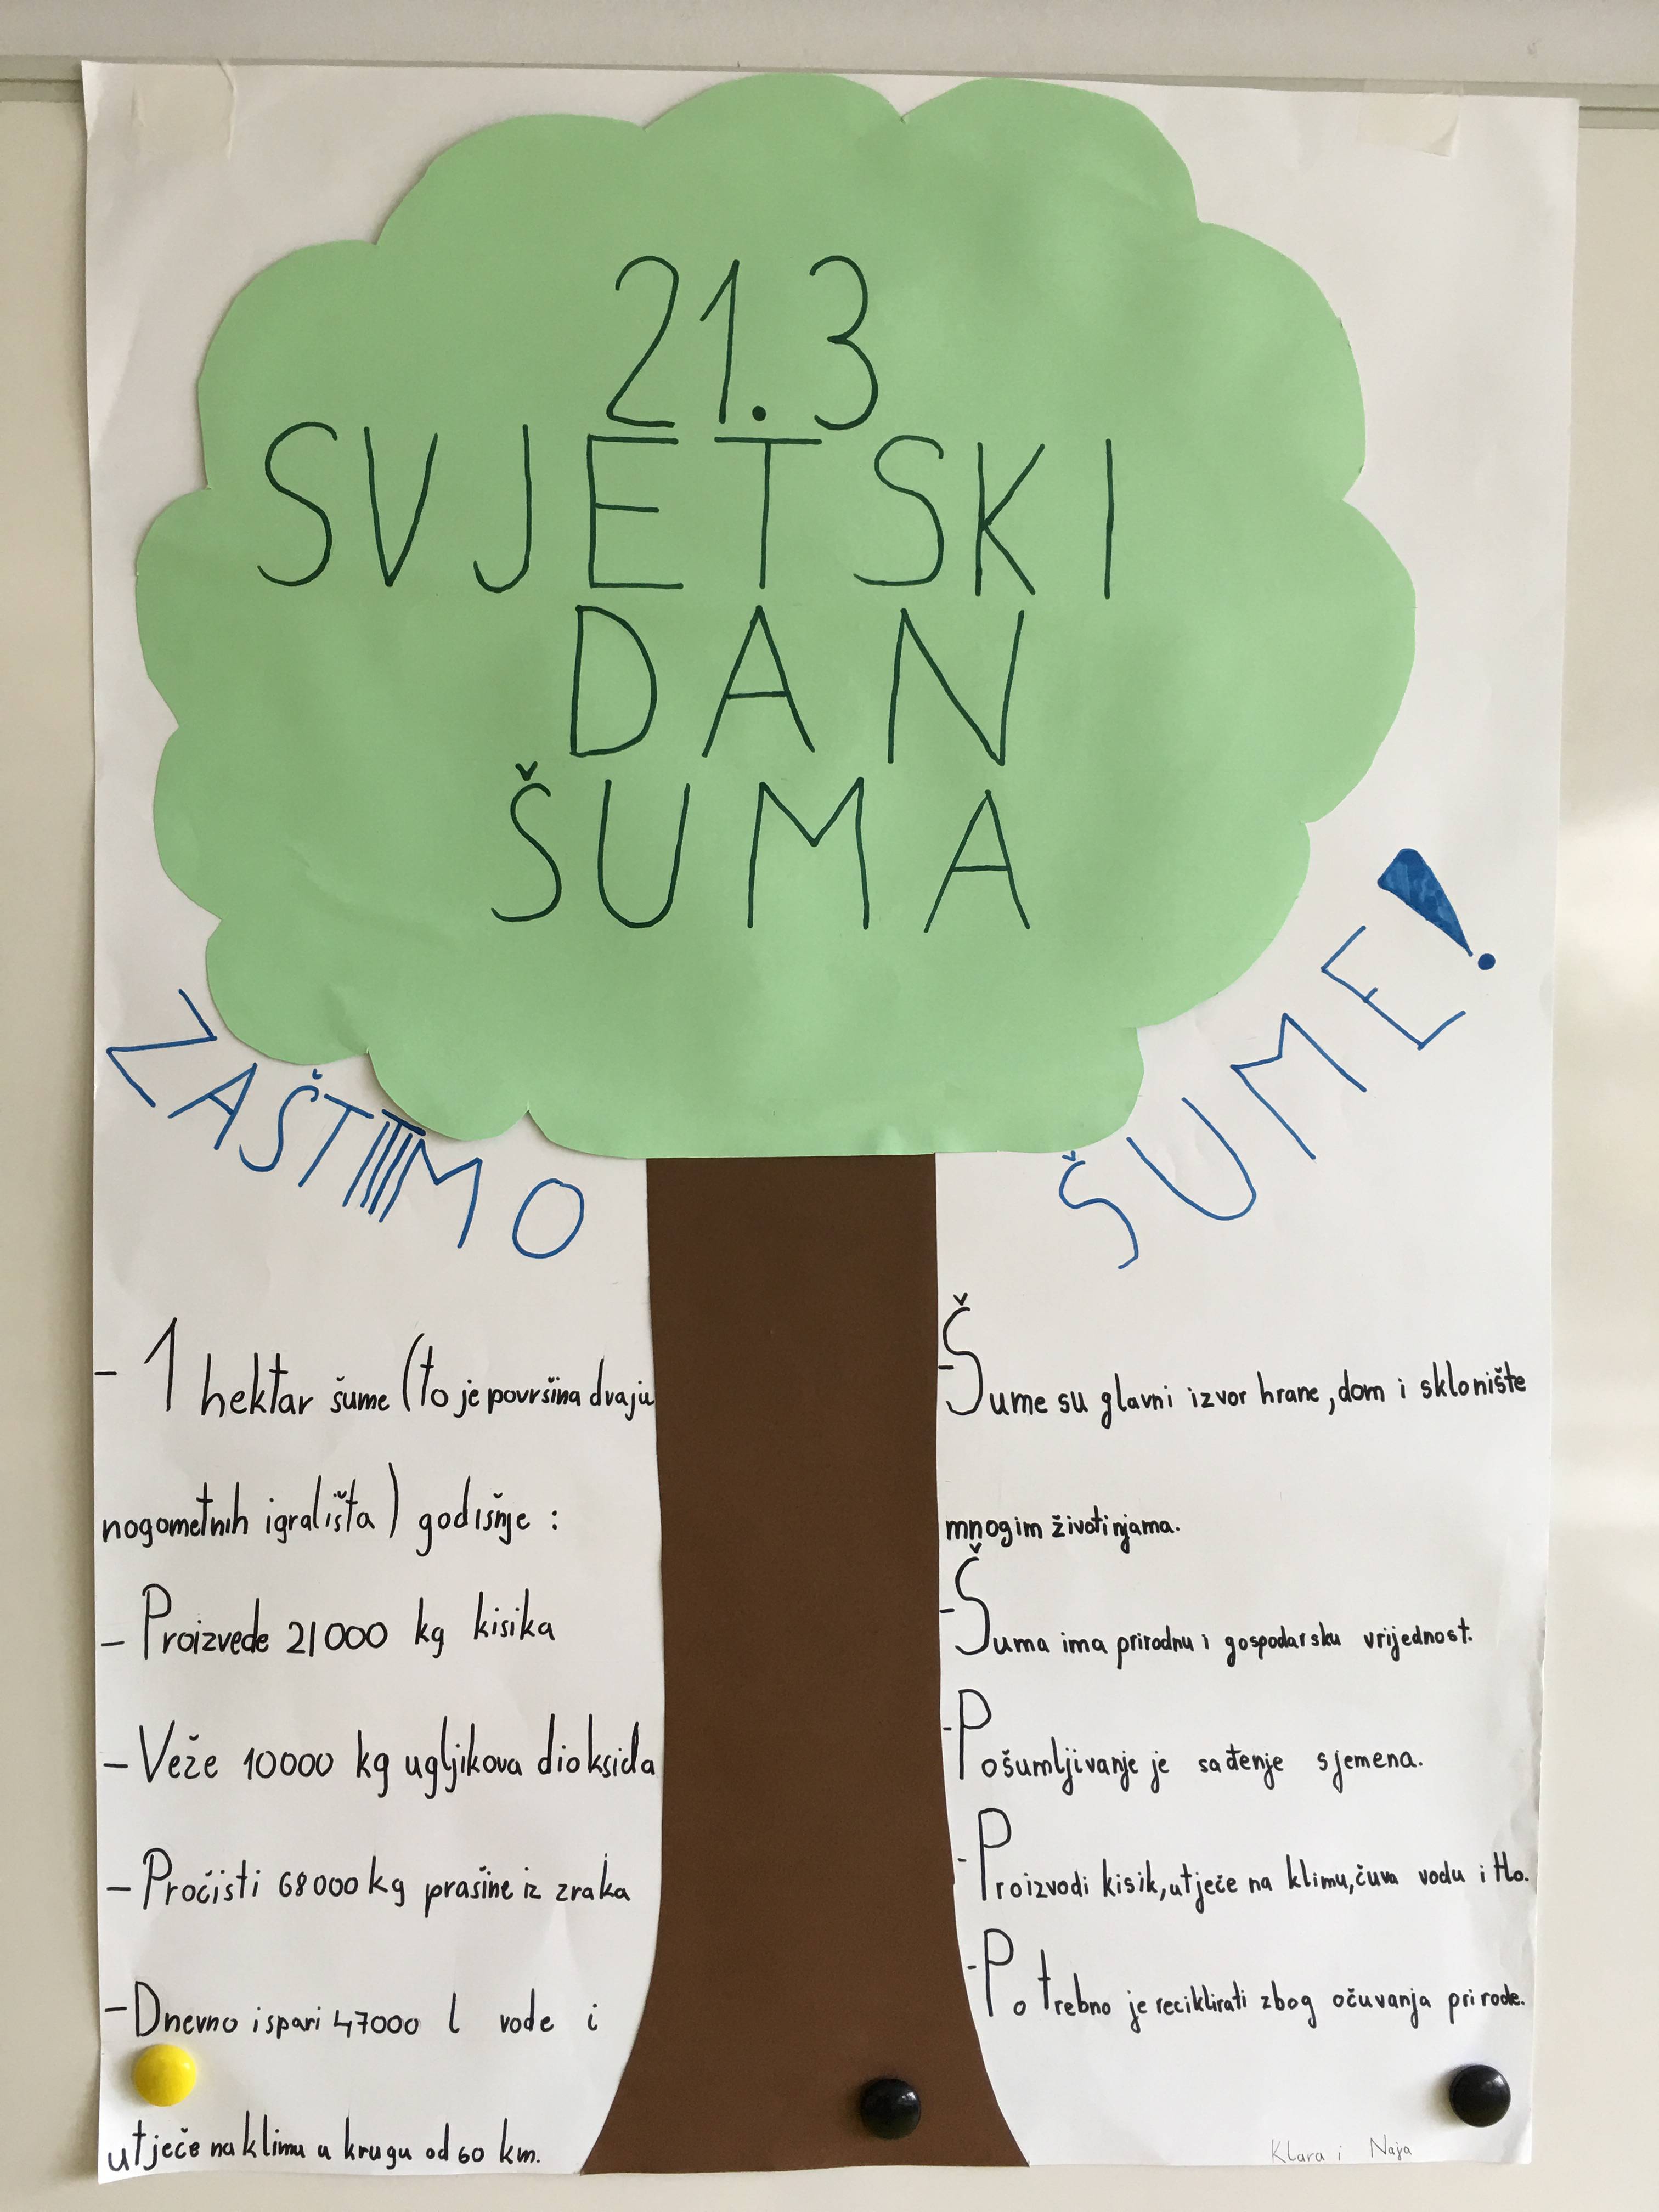 21.3
SVJETSKI
DAN
ŠUMA
ZAŠTITIMO
ŠUME!
- 1 hektar šume (to je površina dvaju
nogometnih igrališta) godišnje:
- Proizvede 21000 kg kisika
- Veže 10000 kg ugljikova dioksida
- Pročisti 68000 kg prašine iz zraka
- Dnevno ispari 47000 l vode i
utječe na klimu u krugu od 60 km.
- Šume su glavni izvor hrane, dom i sklonište
mnogim životinjama.
- Šuma ima prirodnu i gospodarsku vrijednost.
- Pošumljivanje je sađenje sjemena.
- Proizvodi kisik, utječe na klimu, čuva vodu i tlo.
- Potrebno je reciklirati zbog očuvanja prirode.
Klara i Naja